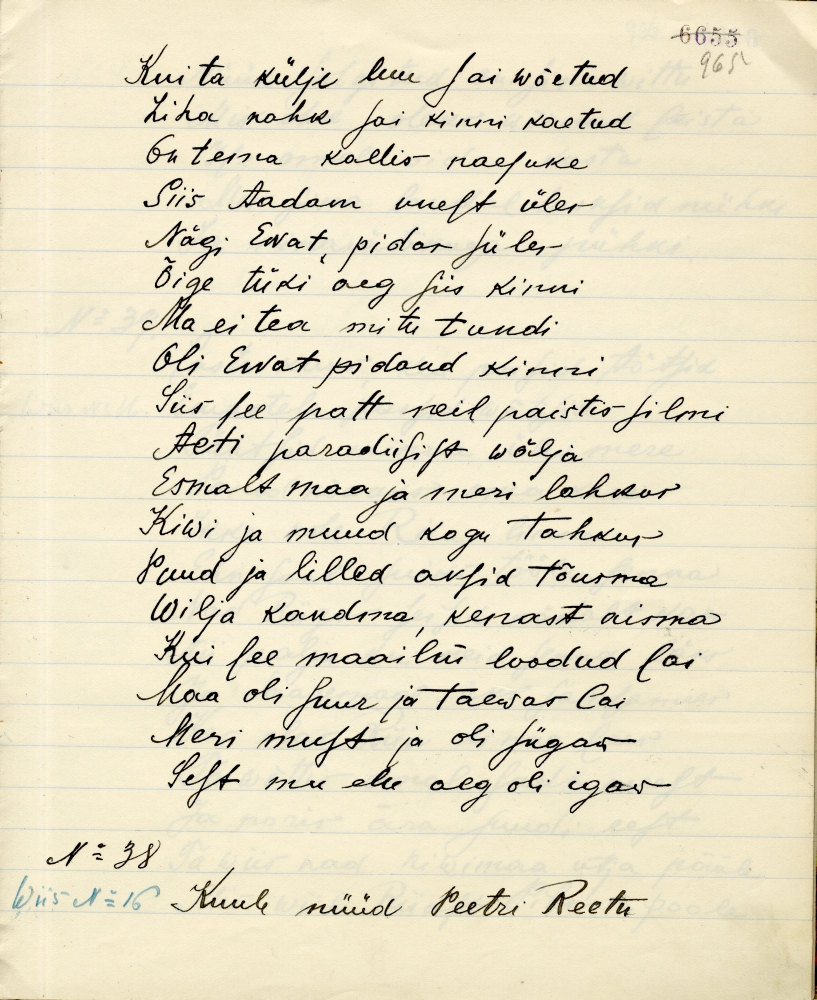 6655
965
Kui ta külje luu sai wõetud
Liha nahk sai kinni kaetud
On tema kallis naesuke
Siis Aadam unest üles
Nägi Ewat, pidas süles
Õige tüki aeg siis kinni
Ma ei tea mitu tundi
Oli Ewat pidand kinni
Siis see patt neil paistis silmi
Aeti paradiisist wälja
Esmalt maa ja meri lahkus
Kiwi ja muud kogu tahkus
Puud ja lilled aksid tõusma
Wilja kandma, kenast aisma
Kui see maailm loodud sai
Maa oli suur ja taewas lai
Meri must ja oli sügaw
Sest mu elu aeg oli igaw
No 38
Wiis No 16 Kuule nüüd Peetri Reetu